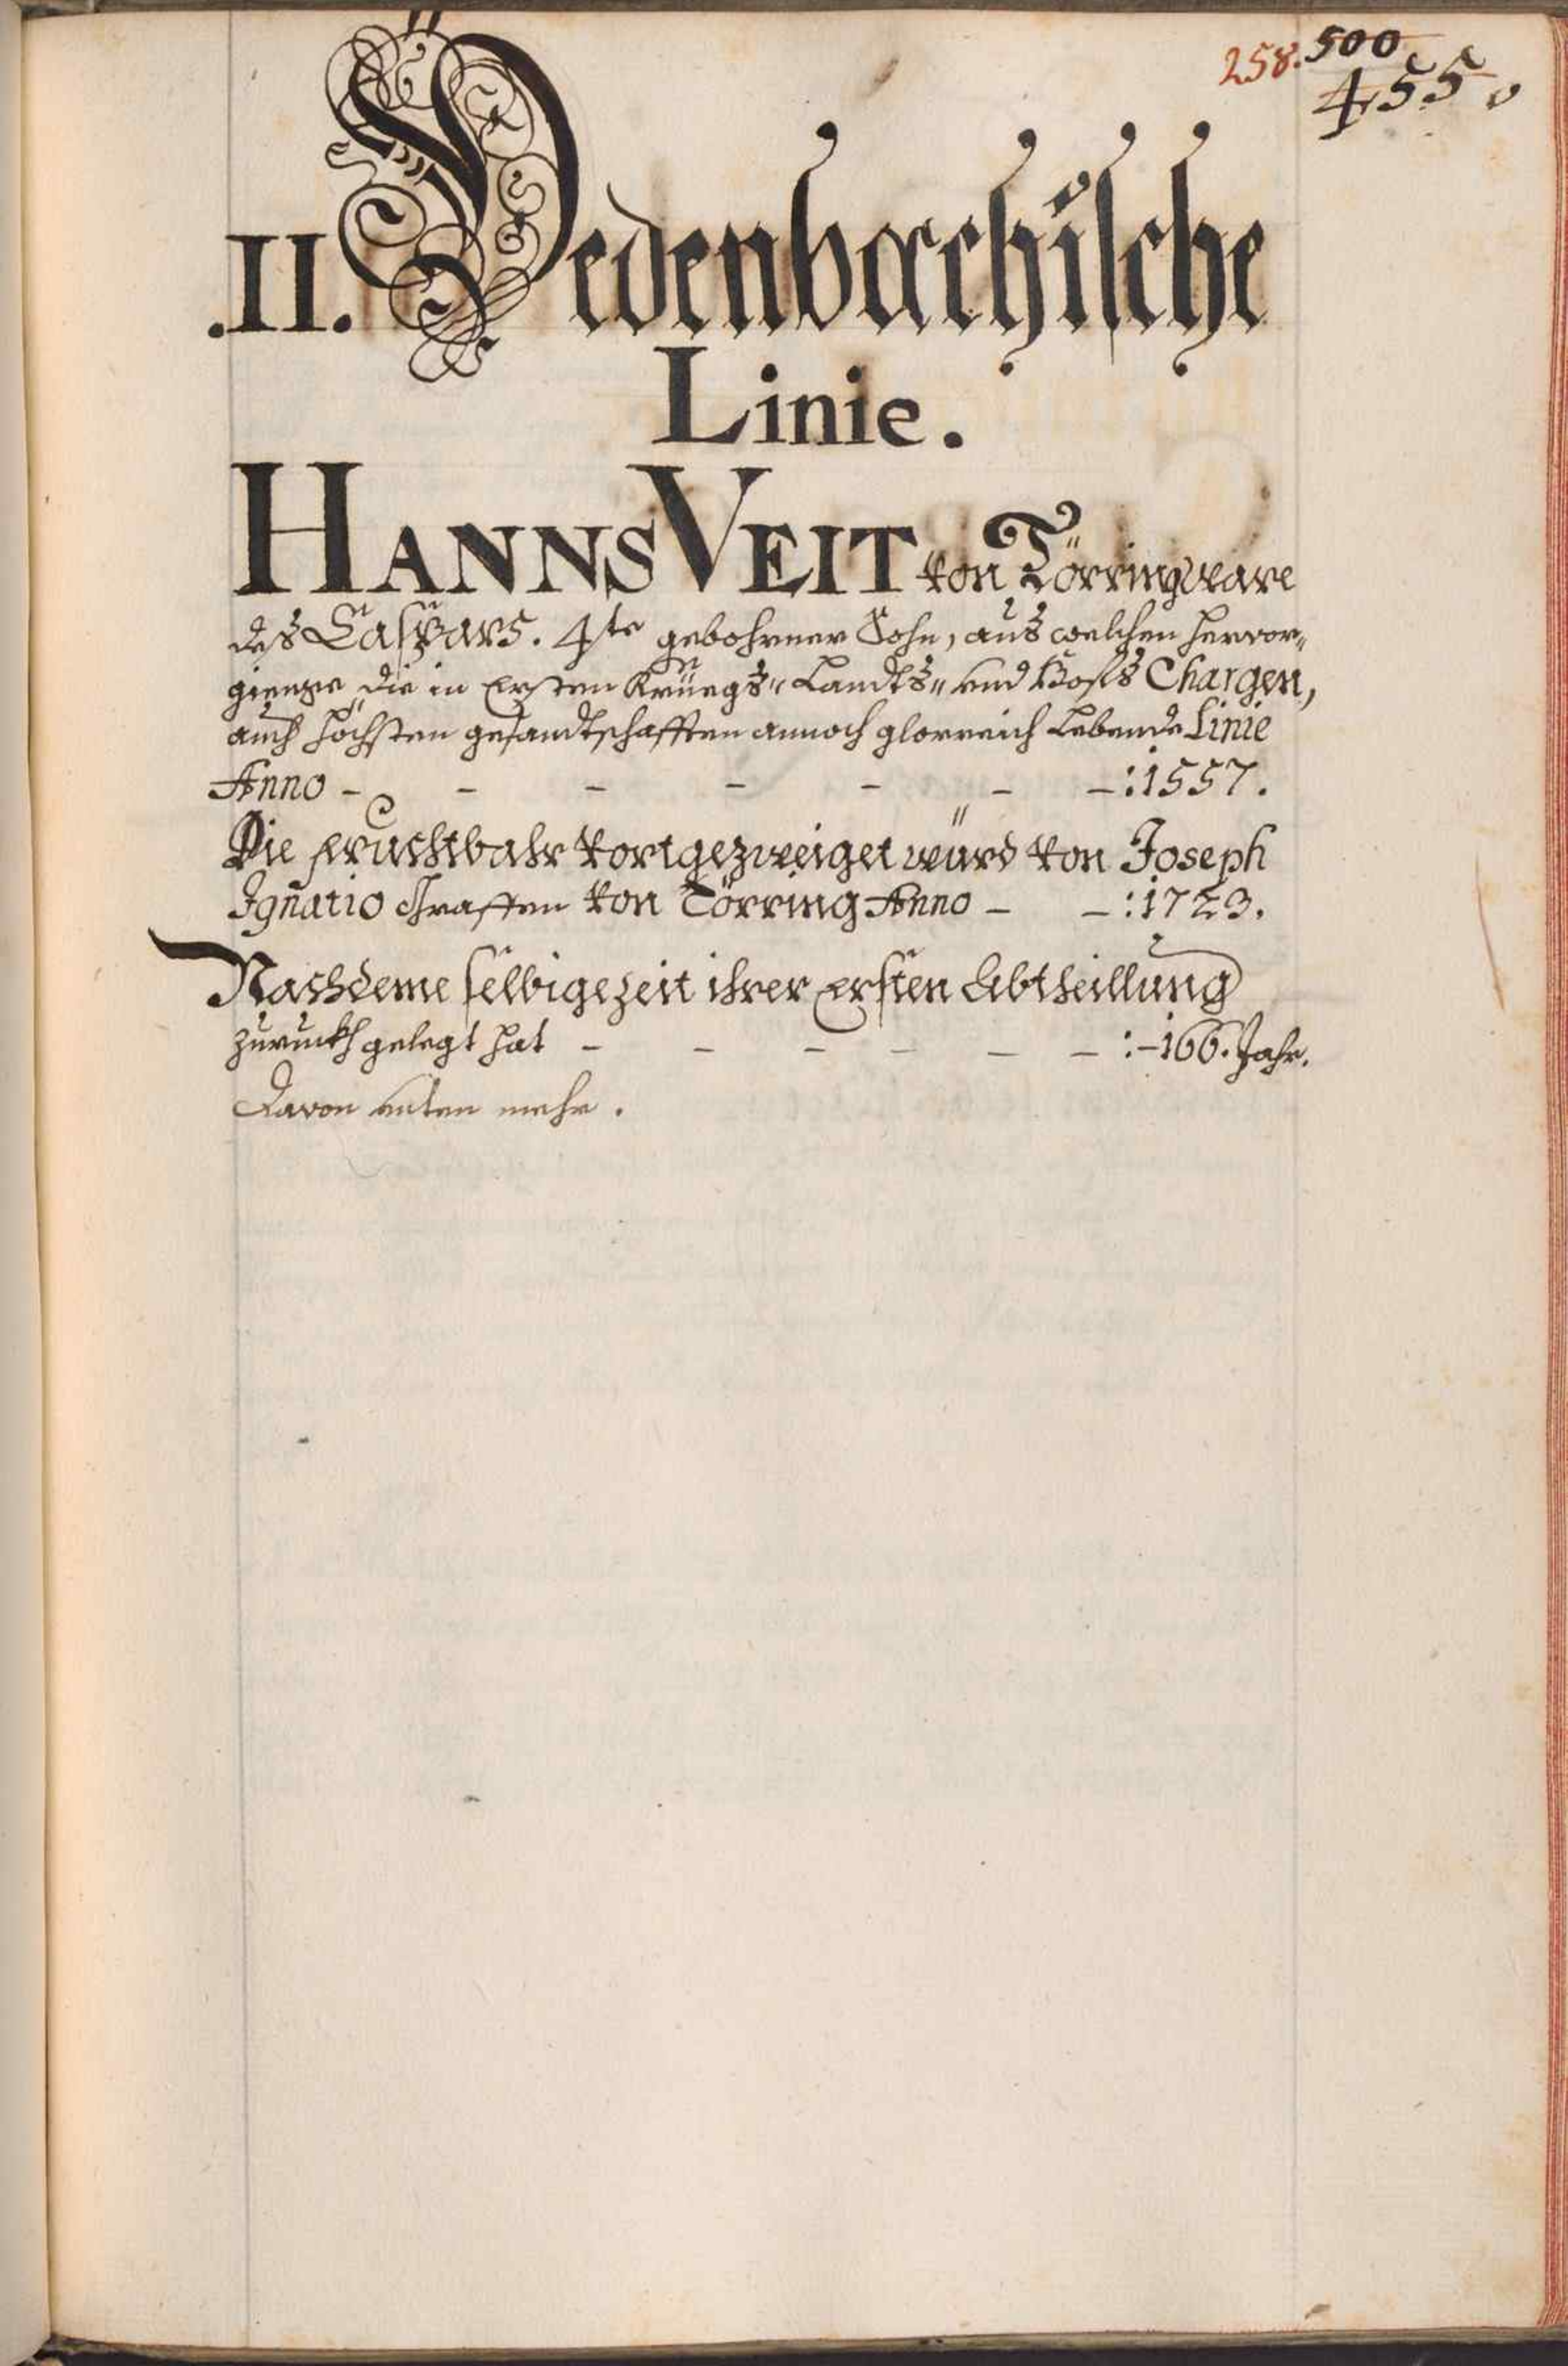 258. 500
455.
.II. Pedenbachische
Linie.
HANNS VEIT von Törring ware
des Caspars. 4te gebohrner Sohn, aus welchen hervor„
gienge die in Ersten Krüegs„ Landts„ und Hofs Chargen,
auch höchsten gesandtschafften annoch glorreich lebende Linie
Anno - - - - - - -:1557.
Die fruchtbahr vortgezweiget würd von Joseph
Ignatio Graffen von Törring Anno - -:1723.
Nachdeme selbige zeit ihrer Ersten Abtheillung
zuruckh gelegt hat - - - - - -:-166. Jahr.
Davon unten mehr.